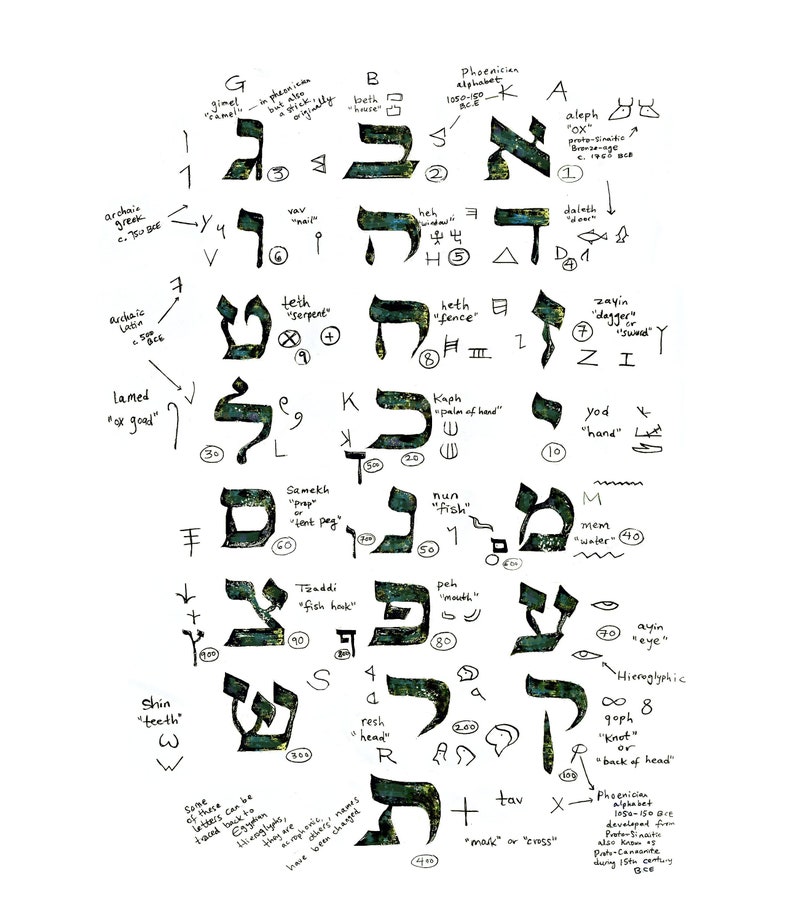 G
gimel
"camel"
in pheonician
but also
a stick,
originally
ג
3
B
beth
"house"
ב
2
Phoenician
alphabet
1050-150
B.C.E
K
A
aleph
"OX"
proto-Sinaitic
Bronze-age
c. 1750 BCE
א
1
archaic
greek
c. 750 BCE
Y
V
ו
vav
"nail"
6
ה
heh
"window"
H
5
ד
daleth
"door"
D
4
archaic
latin
c. 500
BCE
ט
teth
"serpent"
9
ח
heth
"fence"
8
ז
zayin
"dagger"
or
"sword"
7
Z
I
lamed
"ox goad"
ל
L
30
K
כ
Kaph
"palm of hand"
ך
500
20
י
yod
"hand"
10
ס
Samekh
"prop"
or
"tent peg"
60
נ
nun
"fish"
ן
700
50
מ
M
mem
"water"
40
ם
600
צ
Tzaddi
"fish hook"
90
ץ
900
פ
peh
"mouth"
80
ף
800
ע
ayin
"eye"
70
Hieroglyphic
Shin
"teeth"
ש
S
300
ר
resh
"head"
200
R
ק
qoph
"Knot"
or
"back of head"
100
Some
of these
letters can be
traced back to
Egyptian
Hieroglyphs,
they are
acrophonic,
others' names
have been changed
ת
400
tav
"mark" or "cross"
X
Phoenician
alphabet
1050-150 BCE
developed form
Proto-Sinaitic
also known as
Proto-Canaanite
during 15th century
BCE